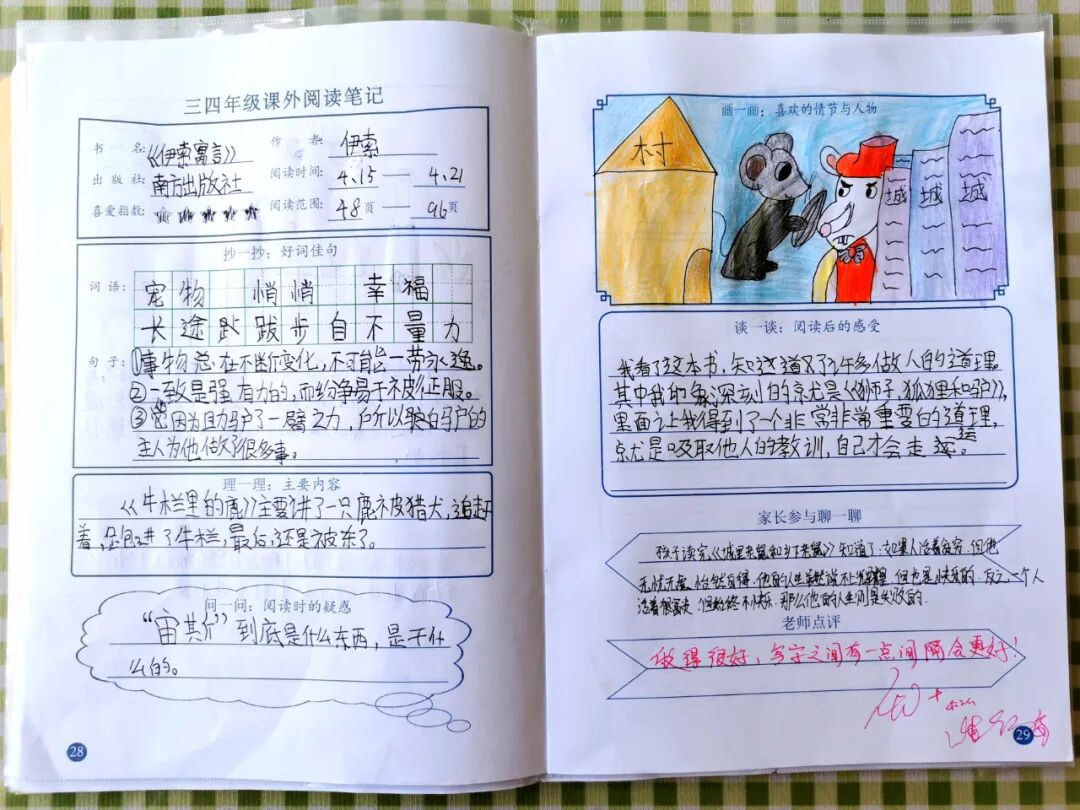 三四年级课外阅读笔记
书 名:《伊索寓言》 作 者: 伊索
出版社: 南方出版社 阅读时间: 4.15 —— 4.21
喜爱指数: 阅读范围: 48页 —— 96页
抄一抄: 好词佳句
词语: 宠物 悄悄 幸福
长途趴跋步 自不量力
句子: ①事物总在不断变化,不可能一劳永逸。
②一致是强有力的,而纷争易于被征服。
③因为助驴了一臂之力,所以驴的
主人为他做了很多事。
理一理: 主要内容
《牛栏里的鹿》主要讲了一只鹿被猎犬追赶
着,跑进了牛栏,最后还是被杀了。
问一问: 阅读时的疑惑
到底是什么东西,是干什
么的。
28
画一画: 喜欢的情节与人物
村
城 城 城
谈一谈: 阅读后的感受
我看了这本书,知道了许多做人的道理。
其中我印象深刻的就是《狮子,狐狸和驴》,
里面让我得到了一个非常非常重要的道理,
就是吸取他人的教训,自己才会走运。
运
家长参与聊一聊
孩子读完《城里老鼠和乡下老鼠》知道了:如果人活着贫穷,但他
无忧无虑,怡然自得,他的人生虽然说不上 但也是快乐的.反之一个人
活着很富裕,但始终不快乐,那么他的人生则是失败的.
老师点评
做得很好,写字之间有一点间隔会更好!
29